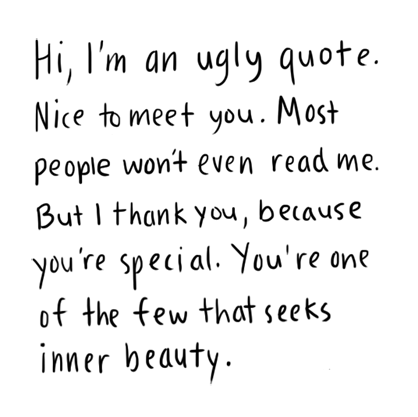 Hi, I'm an ugly quote.
Nice to meet you. Most
people won't even read me.
But I thank you, because
you're special. You're one
of the few that seeks
inner beauty.